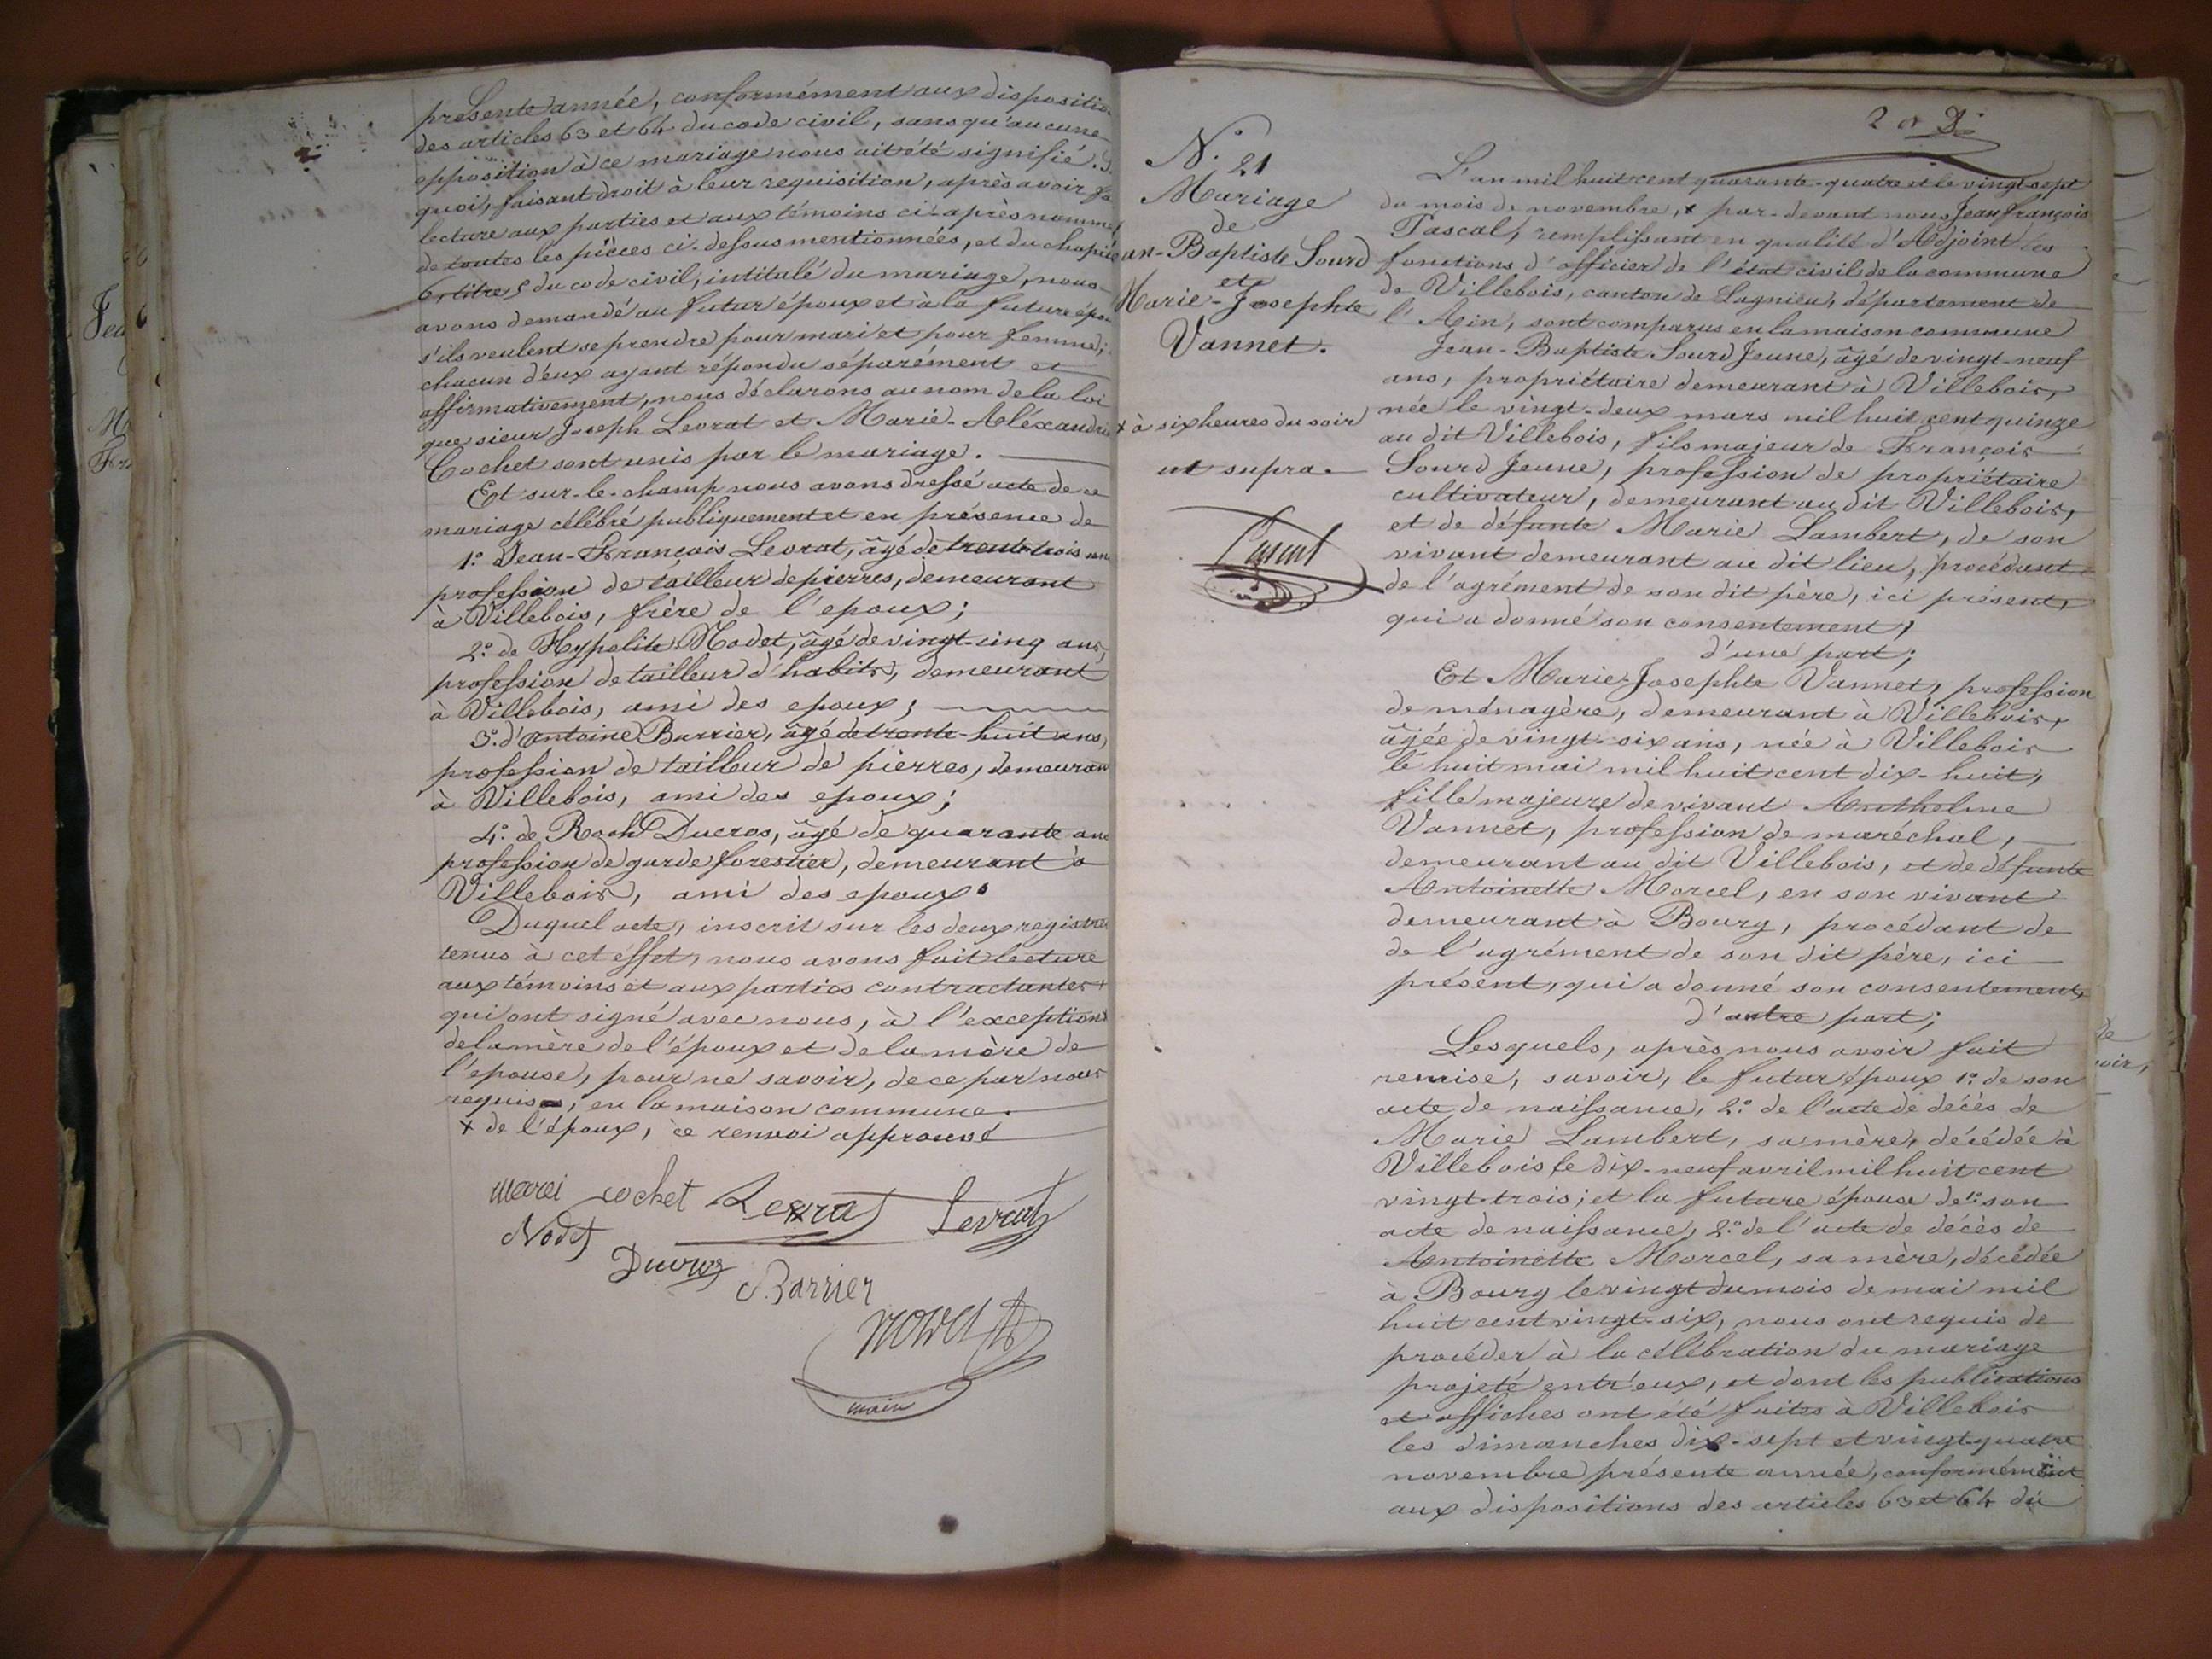 présente année, conformément aux dispositio
des articles 63 et 64 du code civil, sans qu'aucune
opposition à ce mariage nous ait été signifié.
quoi, faisant droit à leur requisition, après avoir fa
lecture aux parties et aux témoins ci-après nommé
de toutes les pièces ci-dessus mentionnées, et du chapit
6, titre 5 du code civil, intitulé du mariage, nous
avons demandé au futur époux et à la future épou
s'ils veulent se prendre pour mari et pour femme;
chacun d'eux ayant répondu séparément et
affirmativement, nous déclarons au nom de la loi
que sieur Joseph Levrat et Marie-Aléxandri
Cochet sont unis par le mariage.
Et sur-le-champ nous avons dressé acte de ce
mariage célébré publiquement et en présence de
1.º Jean-François Levrat, âgé de trente-trois ans
profession de tailleur de pierres, demeurant
à Villebois, frère de l'epoux;
2.º de Hypolite Nodet, âgé de vingt-cinq ans,
profession de tailleur d'habits, demeurant
à Villebois, ami des epoux;
3.º d'Antoine Barrier, âgé de trente-huit ans,
profession de tailleur de pierres, demeuran
à Villebois, ami des epoux;
4.º de Roch Ducros, âgé de quarante ans
profession de garde forestier, demeurant à
Villebois, ami des epoux.
Duquel acte, inscrit sur les deux registre
tenus à cet éffet, nous avons fait lecture
aux témoins et aux parties contractantes
qui ont signé avec nous, à l'exception
de la mère de l'époux et de la mère de
l'epouse, pour ne savoir, de ce par nous
requis, en la maison commune.
x de l'époux, ce renvoi approuvé
marei cochet Levrat Levrat
Nodet
Ducros
Barrier
maire
N.º 21
Mariage
de
an-Baptiste Sourd
et
Marie-Josephte
Vannet.
x à six heures du soir
ut supra.
Pascal
L'an mil huit cent quarante-quatre et le vingt-sept
du mois de novembre, x par-devant nous Jean françois
Pascal, remplissant en qualité d'Adjoint les
fonctions d'officier de l'état civil de la commune
de Villebois, canton de Lagnieu, département de
l'Ain, sont comparus en la maison commune
Jean-Baptiste Sourd Jeune, âgé de vingt-neuf
ans, propriétaire demeurant à Villebois,
née le vingt-deux mars mil huit cent quinze
au dit Villebois, fils majeur de François
Sourd Jeune, profession de propriétaire
cultivateur, demeurant au dit Villebois,
et de défunte Marie Lambert, de son
vivant demeurant au dit lieu, procédant
de l'agrément de son dit père, ici présent,
qui a donné son consentement,
d'une part;
Et Marie-Josephte Vannet, profession
de ménagère, demeurant à Villebois,
âgée de vingt-six ans, née à Villebois
le huit mai mil huit cent dix-huit,
fille majeure de vivant Anthelme
Vannet, profession de maréchal,
demeurant au dit Villebois, et de défunte
Antoinette Morcel, en son vivant
demeurant à Bourg, procédant de
de l'agrément de son dit père, ici
présent, qui a donné son consentement,
d'autre part;
Lesquels, après nous avoir fait
remise, savoir, le futur époux 1.º de son
acte de naissance, 2.º de l'acte de décès de
Marie Lambert, sa mère, décédée à
Villebois le dix-neuf avril mil huit cent
vingt-trois; et la future épouse de 1.º son
acte de naissance, 2.º de l'acte de décès de
Antoinette Morcel, sa mère, décédée
à Bourg le vingt du mois de mai mil
huit cent vingt-six, nous ont requis de
procéder à la célébration du mariage
projeté entr'eux, et dont les publications
et affiches ont été faites à Villebois
les dimanches dix-sept et vingt-quatre
novembre présente année, conformément
aux dispositions des articles 63 et 64 du